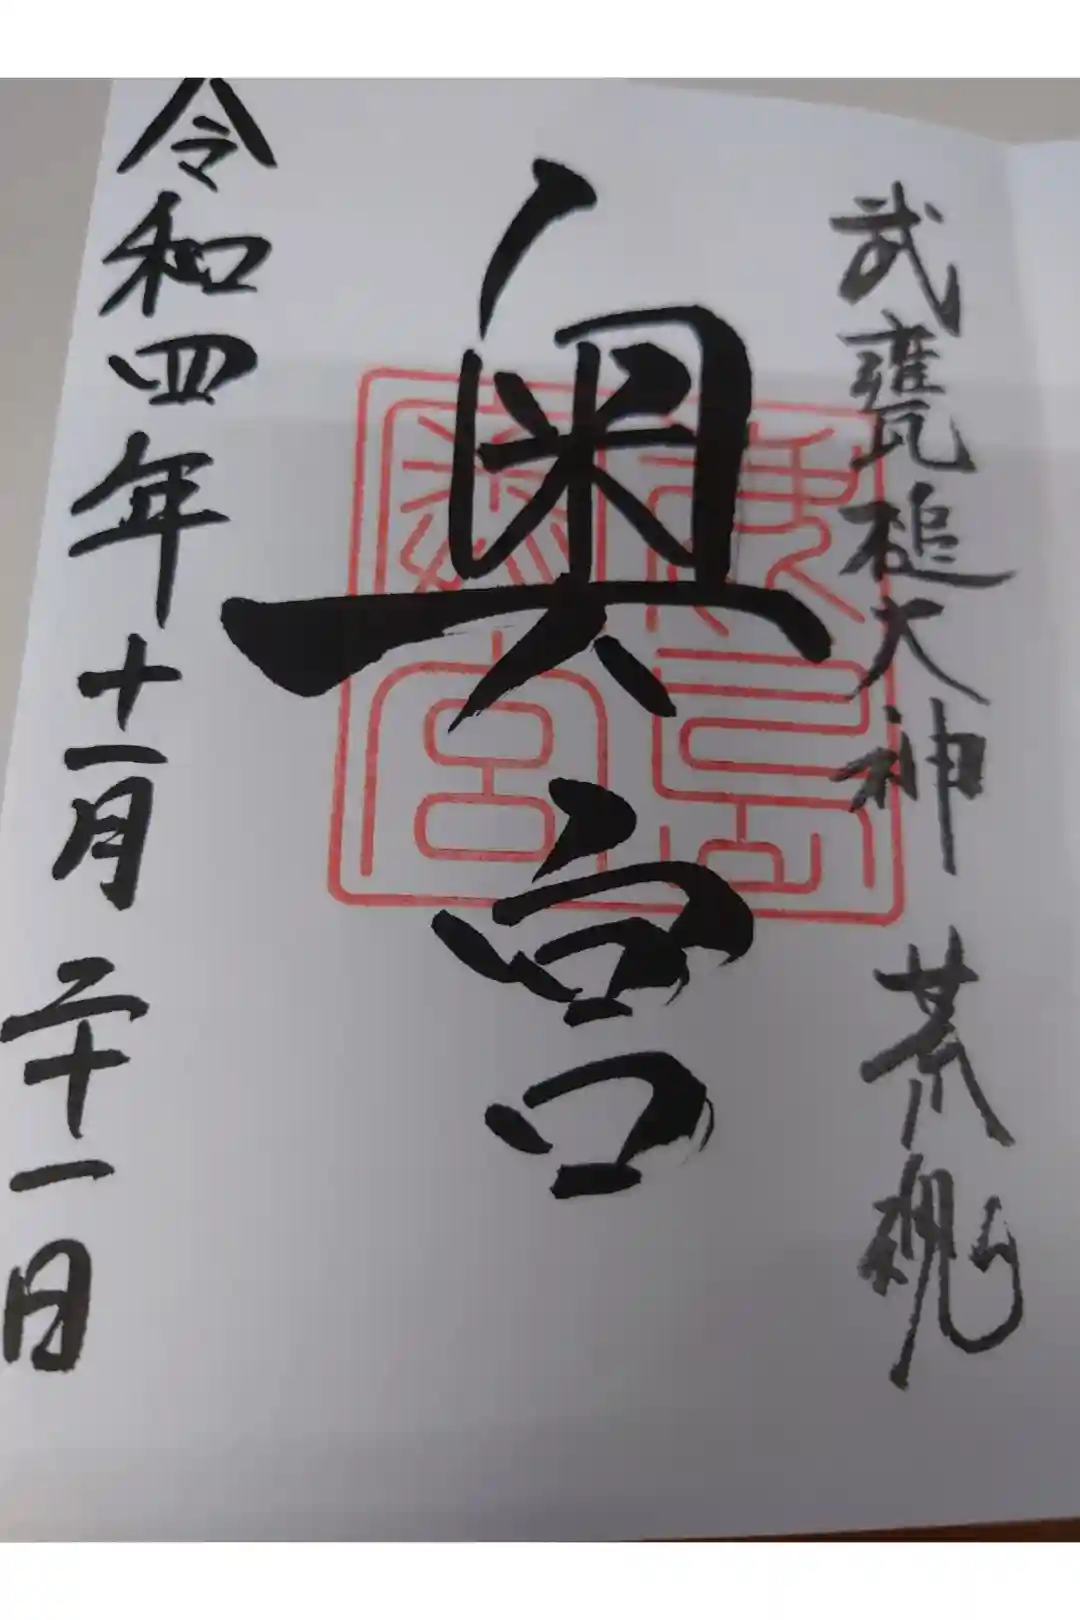 武甕槌大神 荒魂
奥宮
鹿島神宮
令和四年十一月二十一日